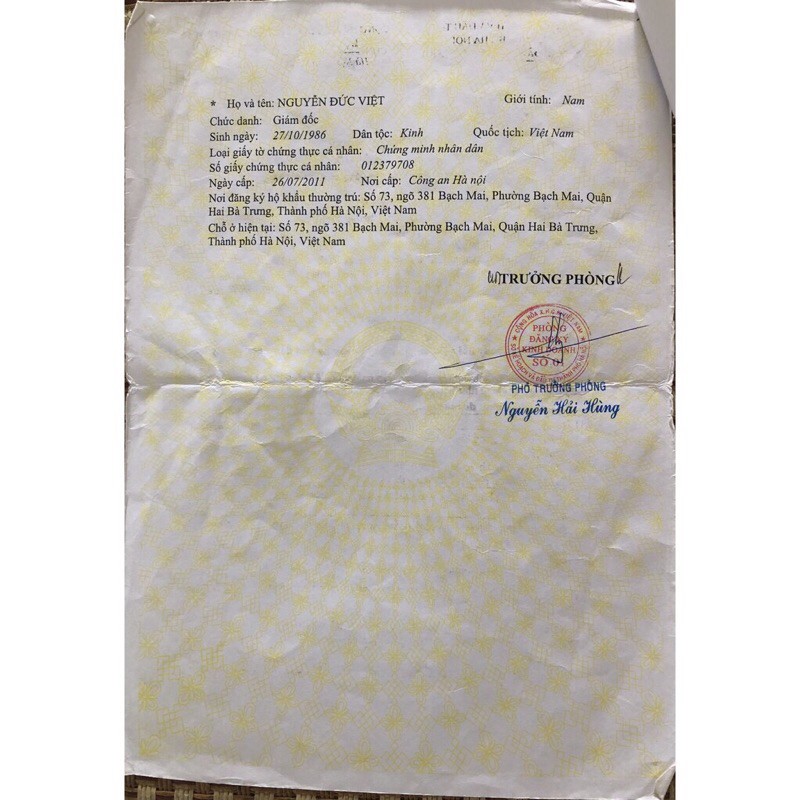 * Họ và tên: NGUYỄN ĐỨC VIỆT Giới tính: Nam
Chức danh: Giám đốc
Sinh ngày: 27/10/1986 Dân tộc: Kinh Quốc tịch: Việt Nam
Loại giấy tờ chứng thực cá nhân: Chứng minh nhân dân
Số giấy chứng thực cá nhân: 012379708
Ngày cấp: 26/07/2011 Nơi cấp: Công an Hà nội
Nơi đăng ký hộ khẩu thường trú: Số 73, ngõ 381 Bạch Mai, Phường Bạch Mai, Quận
Hai Bà Trưng, Thành phố Hà Nội, Việt Nam
Chỗ ở hiện tại: Số 73, ngõ 381 Bạch Mai, Phường Bạch Mai, Quận Hai Bà Trưng,
Thành phố Hà Nội, Việt Nam
TRƯỞNG PHÒNG
PHÒNG
ĐĂNG KÝ
KINH DOANH
SỐ 01
PHÓ TRƯỞNG PHÒNG
Nguyễn Hải Hùng